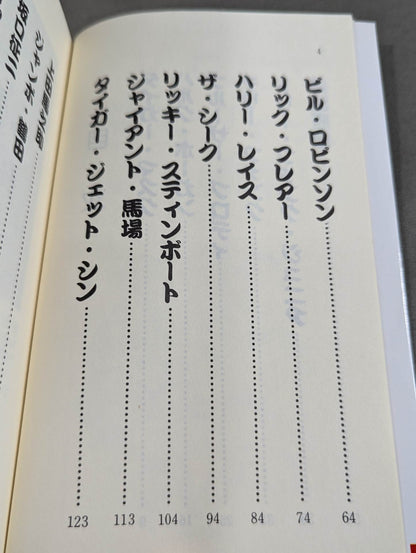 ビル・ロビンソン……64
リック・フレアー……74
ハリー・レイス……84
ザ・シーク……94
リッキー・スティンボート……104
ジャイアント・馬場……113
タイガー・ジェット・シン……123
ジャンボ・鶴田